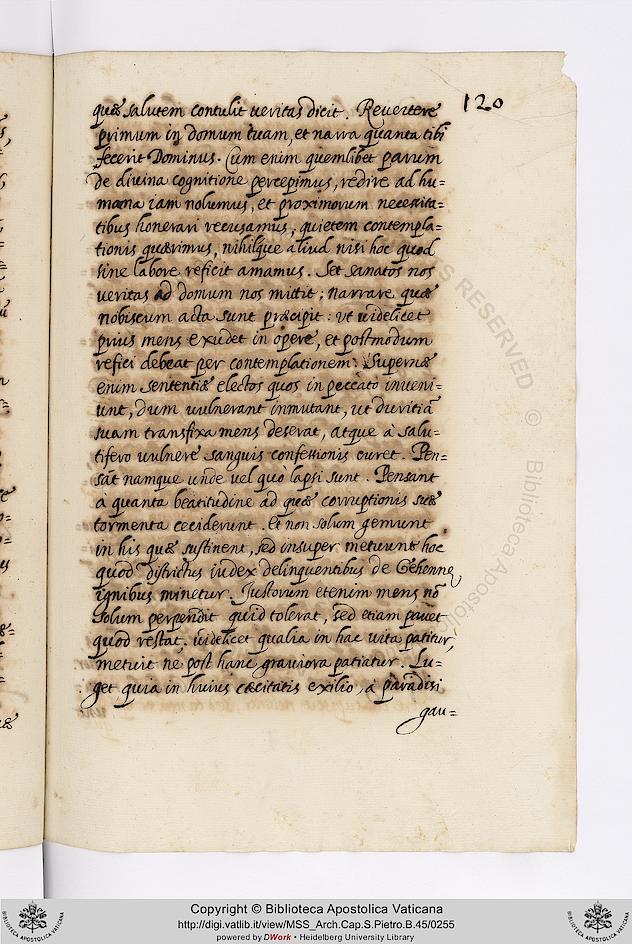 120
quæ salutem contulit veritas dicit. Reuertere
primum in domum tuam, et narra quanta tibi
fecerit Dominus. Cum enim quemlibet parum
de diuina cognitione percepimus, redire ad hu=
mana iam nolumus, et proximorum necessita=
tibus honerari recusamus, quietem contempla=
tionis quærimus, nihilque aliud nisi hoc quod
sine labore reficit amamus. Set sanatos nos
veritas ad domum nos mittit; narrare quæ
nobiscum acta sunt præcipit: vt videlicet
prius mens exudet in opere, et postmodum
refici debeat per contemplationem. Supernæ
enim sententiæ electos quos in peccato inueni=
unt, dum vulnerant inmutant, ut duritiã
suam transfixa mens deserat, atque à salu=
tifero vulnere sanguis confessionis curet. Pen=
sãt namque unde vel quò lapsi sunt. Pensant
à quanta beatitudine ad quæ corruptionis suæ
tormenta ceciderunt. Et non solum gemunt
in his quæ sustinent, sed insuper metuunt hoc
quod districtus iudex delinquentibus de Gehennę
ignibus minetur. Iustorum etenim mens nõ
solum perpendit quid tolerat, sed etiam pauet
quod restat, videlicet qualia in hac vita patitur,
metuit ne post hanc grauiora patiatur. Lu=
get quia in huius cæcitatis exilio, à paradisi
gau=
RESERVED © Biblioteca Aposto
Copyright © Biblioteca Apostolica Vaticana
http://digi.vatlib.it/view/MSS_Arch.Cap.S.Pietro.B.45/0255
powered by DWork • Heidelberg University Library